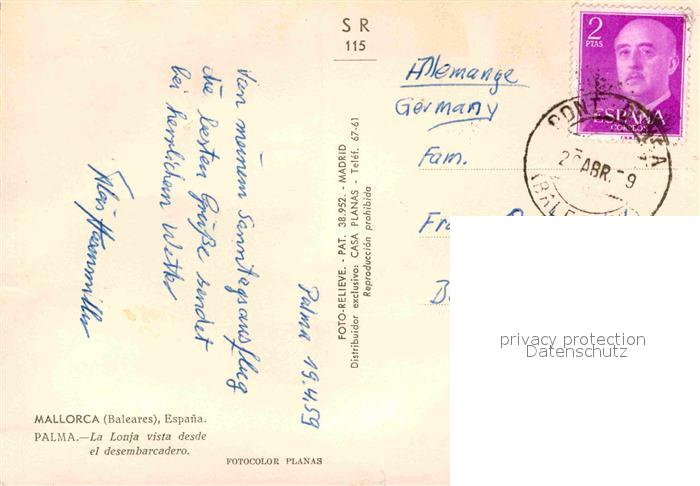 S R
115
2
PTAS
ESPAÑA
CORREOS
ABR.
Allemange
Germany
Fam.
Palma 19.4.59
Von meinem Sonntagsausflug
die besten Grüße sendet
bei herrlichem Wetter
FOTO-RELIEVE. - PAT. 38.952. - MADRID
Distribuidor exclusivo: CASA PLANAS - Teléf. 67-61
Reproducción prohibida
MALLORCA (Baleares), España.
PALMA.—La Lonja vista desde
el desembarcadero.
FOTOCOLOR PLANAS
privacy protection
Datenschutz